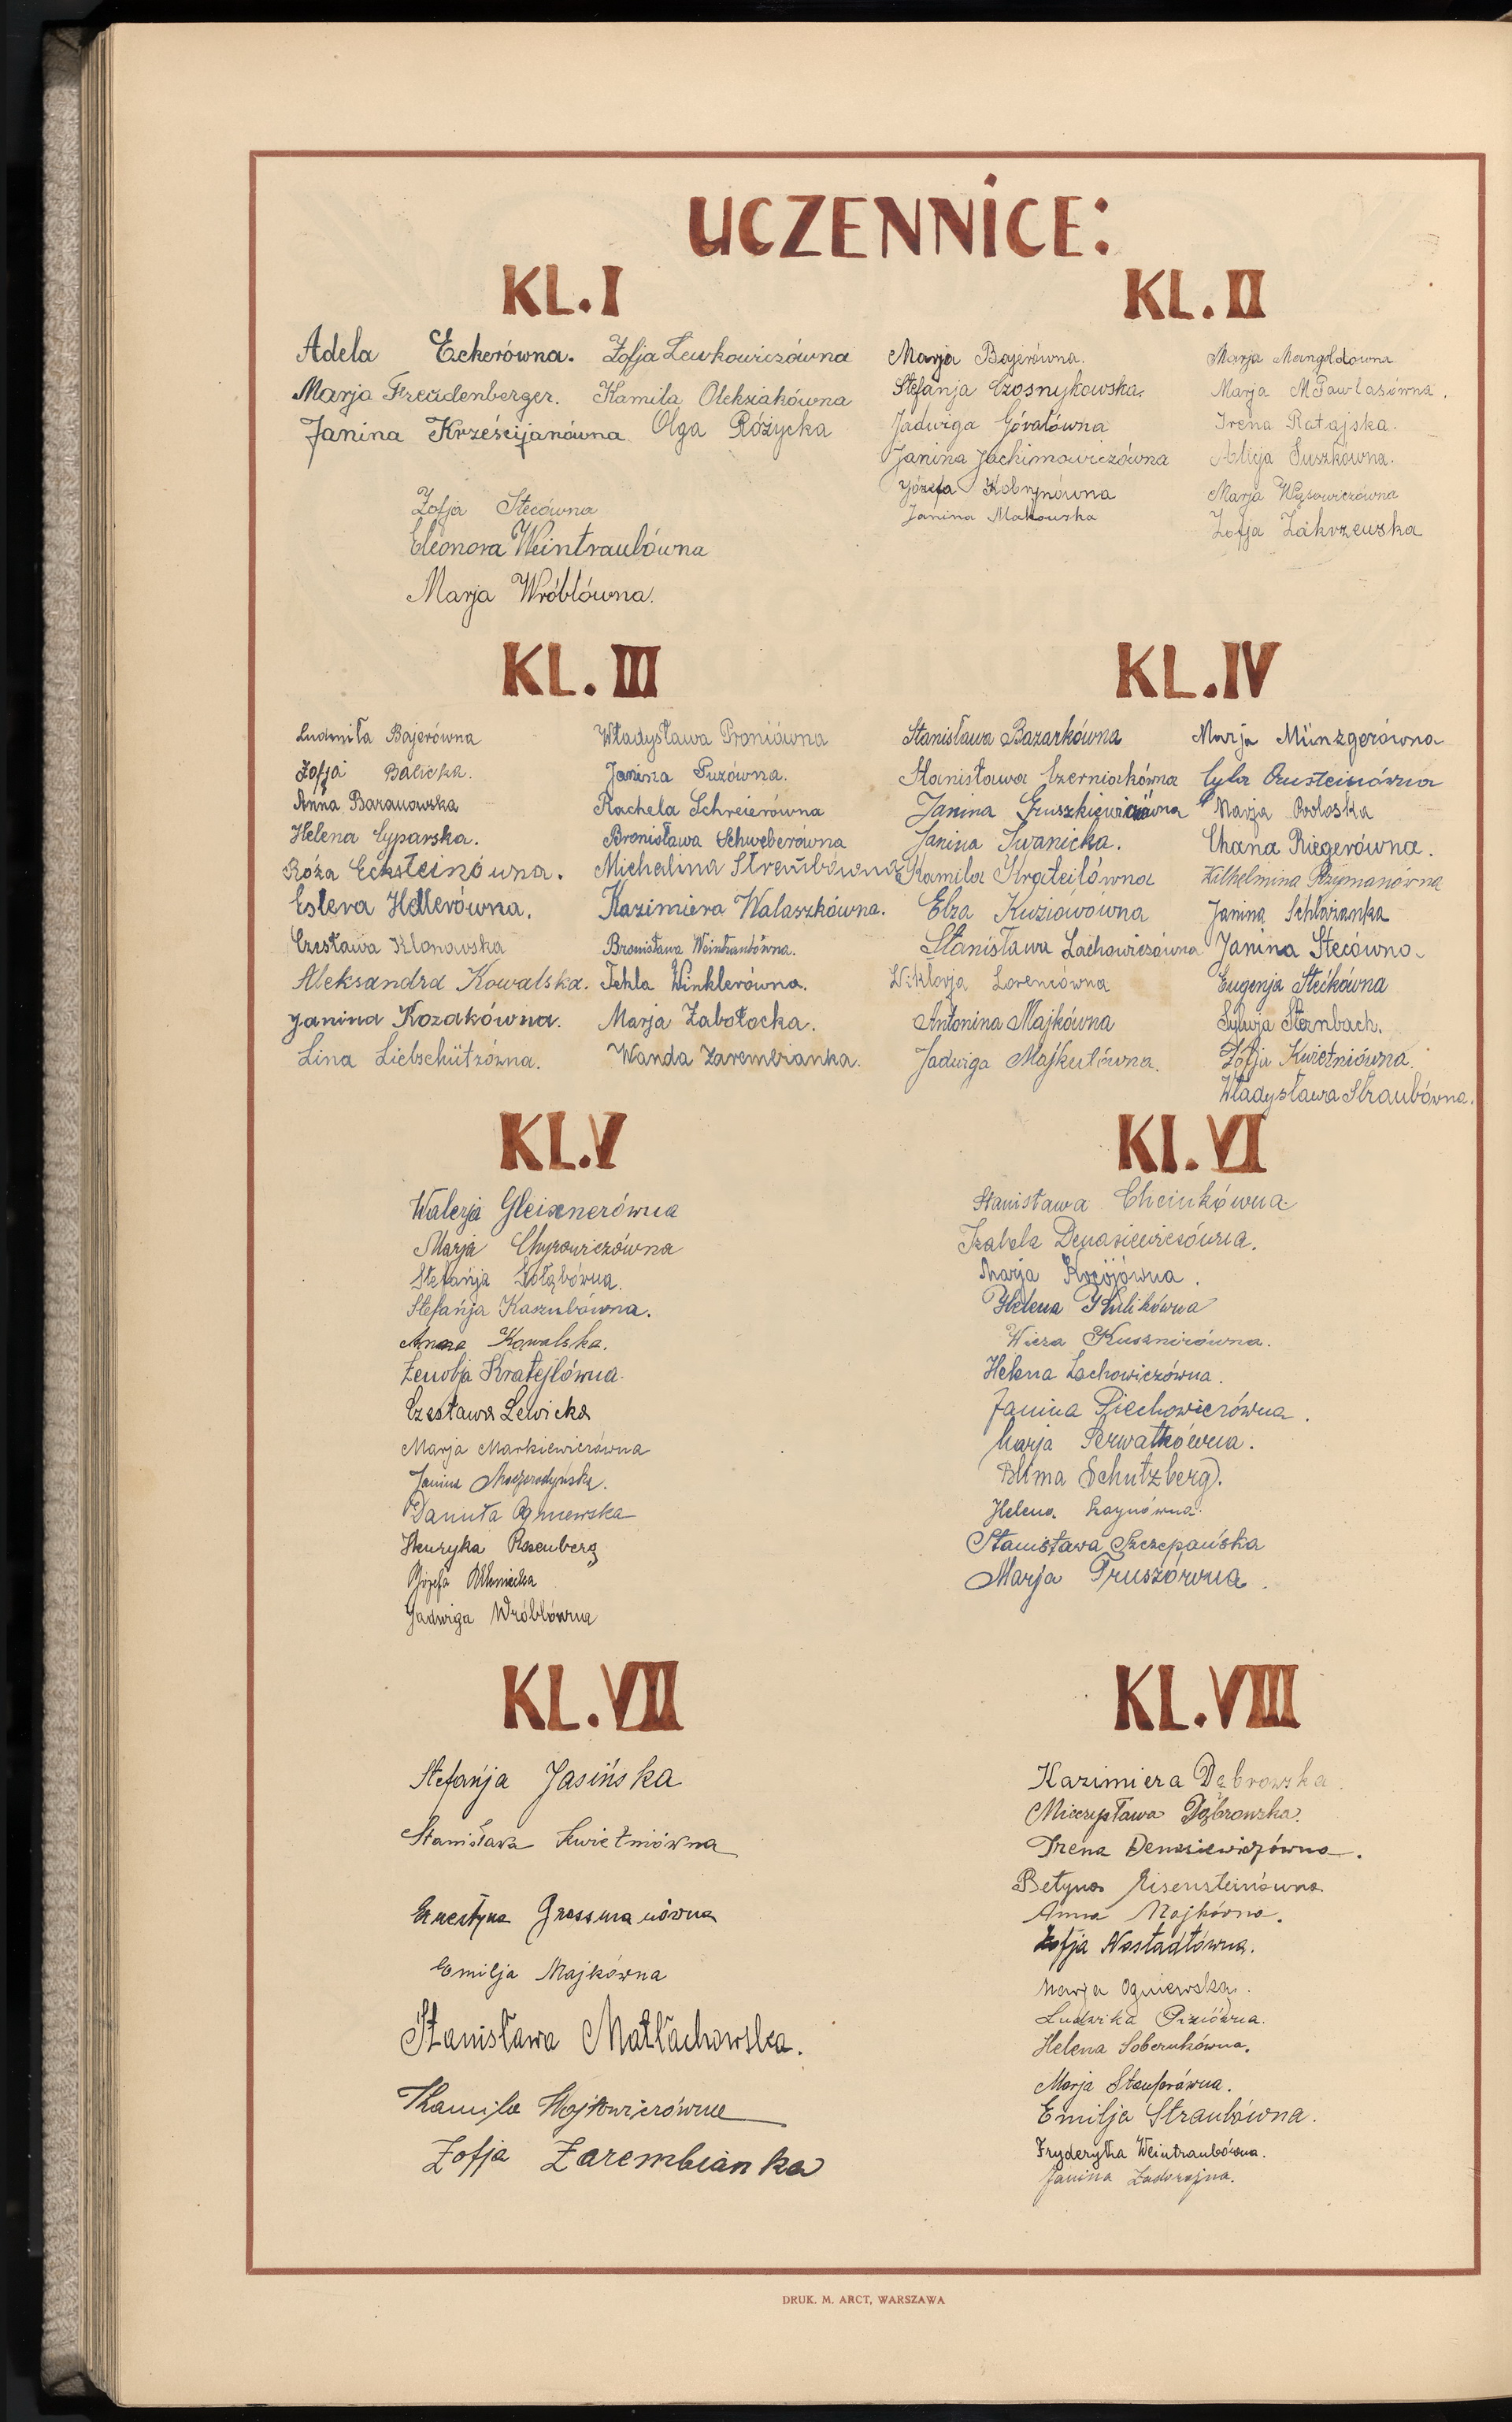 UCZENNICE:
KL. I
Adela Eckerówna. Zofja Lewkowiczówna
Marja Freudenberger. Kamila Oleksiakówna
Janina Krześcijanówna Olga Różycka
Zofja Stecówna
Eleonora Weintraubówna
Marja Wróblówna.
KL. II
Marja Bajerówna.
Stefanja Czosnykowska.
Jadwiga Góralówna
Janina Jachimowiczówna
Józefa Kobrynówna
Janina Makowska
Marja Mangoldówna
Marja Pawlasówna.
Irena Ratajska.
Alicja Suszkówna.
Marja Wysowiczówna
Zofja Zakrzewska
KL. III
Ludmiła Bajerówna
Zofja Balicka.
Anna Baranowska
Helena Cyparska.
Róża Ecksteinówna.
Estera Hellerówna.
Czesława Klonowska
Aleksandra Kowalska.
Janina Kozakówna.
Lina Liebschützówna.
Władysława Proniówna
Janina Puzówna.
Rachela Schreierówna
Bronisława Schweberówna
Michalina Strembówna
Kazimiera Walaszkówna.
Bronisława Weintraubówna.
Tekla Winklerówna.
Marja Zabołocka.
Wanda Zarembianka.
KL. IV
Stanisława Bazarkówna
Stanisława Czerniakówna
Janina Gruszkiewiczówna
Janina Iwanicka.
Kamila Krateilówna
Elza Kuziowówna
Stanisława Lachowiczówna
Wiktorja Loreniówna
Antonina Majkówna
Jadwiga Majkutówna.
Marja Münzgerówna
Cyla Ornsteinówna
Marja Podoska
Chana Riegerówna.
Wilhelmina Rozymanówna
Janina Schlarianka
Janina Stecówna.
Eugenja Stećkówna
Sylwja Sternbach.
Zofja Kwietniówna.
Władysława Straubówna.
KL. V
Walerja Gleixnerówna
Marja Chyrowiczówna
Stefanja Gołąbówna.
Stefanja Kaszubówna.
Anna Kowalska.
Zenobja Kratejlówna.
Czesława Lewicka
Marja Markiewiczówna
Janina
Danuta Ogniewska
Henryka Rosenberg
Józefa
Jadwiga Wróblówna
Kl. VI
Stanisława Cheinkówna
Izabela Denasiewiczówna.
Marja Kocójówna.
Helena Kulikówna
Wiera Kusznirówna.
Helena Lachowiczówna.
Janina Piechowiczówna.
Marja Serwatkówna.
Blima Schutzberg.
Helena Szaynówna.
Stanisława Szczepańska
Marja Truszówna.
KL. VII
Stefanja Jasińska
Stanisława Kwietniówna
Ernestyna Grossmanówna
Emilja Majkówna
Stanisława Matłachowska.
Kamila Wojtowiczówna
Zofja Zarembianka
KL. VIII
Kazimiera Dąbrowska.
Mieczysława Dąbrowska.
Irena Denasiewiczówna.
Betyna Eisensteinówna
Anna Majkówna.
Zofja Nostadtówna.
Marja Ogniewska.
Ludwika Piziówna.
Helena Soberukówna.
Marja Stauferówna.
Emilja Straubówna.
Fryderyka Weintraubówna.
Janina Zadorojna.
DRUK. M. ARCT, WARSZAWA